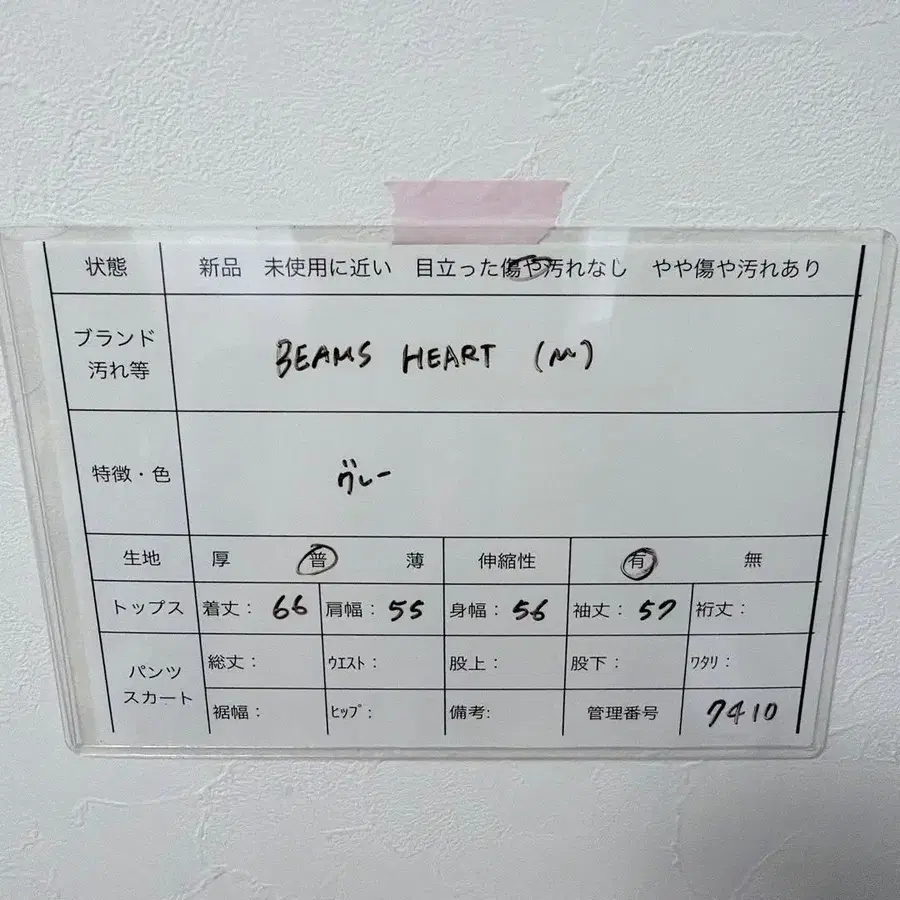 状態 新品 未使用に近い 目立った傷や汚れなし やや傷や汚れあり
ブランド
汚れ等
BEAMS HEART (M)
特徴・色 グレー
生地 厚 普 薄 伸縮性 有 無
トップス 着丈: 66 肩幅: 55 身幅: 56 袖丈: 57 裄丈:
パンツ
スカート
総丈: ウエスト: 股上: 股下: ワタリ:
裾幅: ヒップ: 備考: 管理番号 7410